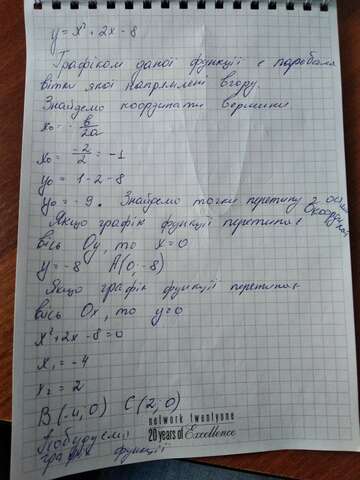 y = x² + 2x - 8
Графіком даної функції є парабола
вітки якої напрямлені вгору.
Знайдемо координати вершини
x₀ = - в/2a
x₀ = -2/2 = -1
y₀ = 1 - 2 - 8
y₀ = -9. Знайдемо точки перетину з осями координат
Якщо графік функції перетинає
вісь Oy, то x = 0
y = -8 A(0, -8)
Якщо графік функції перетинає
вісь Ox, то y = 0
x² + 2x - 8 = 0
x₁ = -4
x₂ = 2
B(-4, 0) C(2, 0)
network twentyone
20 years of Excellence
Побудуємо
графік функції